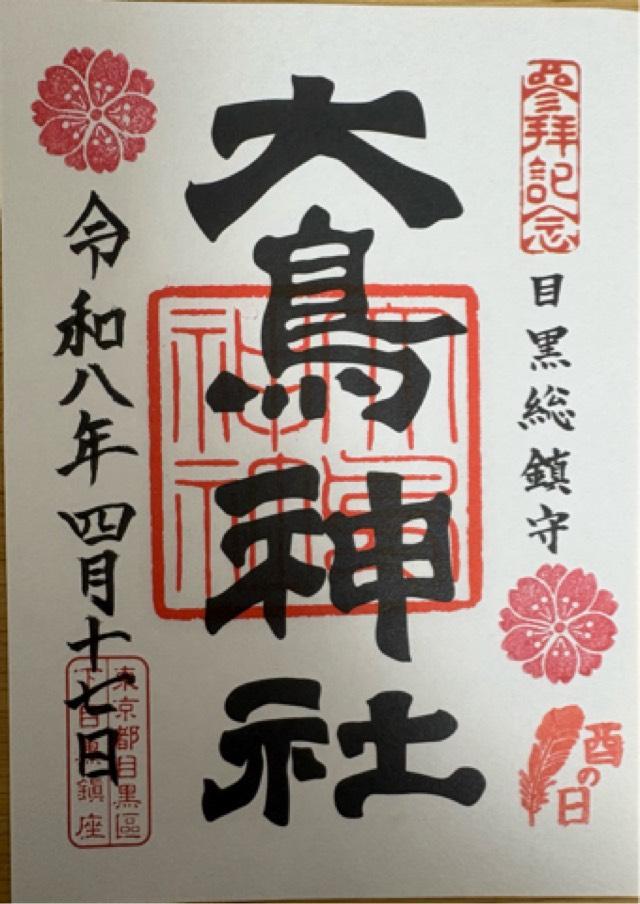 参拝記念
目黒総鎮守
酉の日
大鳥神社
令和八年四月十七日
東京都目黒區
下目黒鎮座